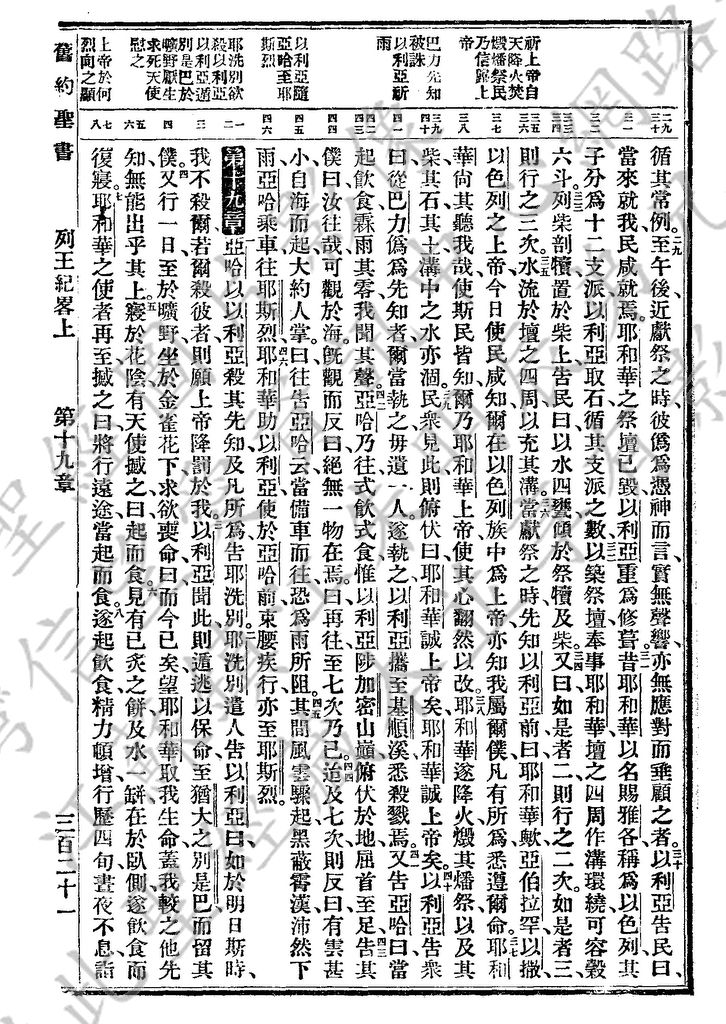 祈上帝自
天降火焚
燬燔祭民
乃信歸上
帝
巴力先知
被誅
以利亞祈
雨
以利亞隨
亞哈至耶
斯烈
耶洗別欲
殺以利亞
以利亞遁
別是巴於
曠野厭生
求死天使
慰之
上帝於何
烈向之顯
二九 三十
三一
三二
三三 三四
三五 三六
三七
三八
三九 四十
四一
四二 四三
四四
四五
四六
一 二
三
四
五 六
七 八
循其常例。二九至午後近獻祭之時、彼僞爲憑神而言、實無聲響、亦無應對而垂顧之者。三十以利亞告民曰、
當來就我、民咸就焉。耶和華之祭壇已毀、以利亞重爲修葺。三一昔耶和華以名賜雅各、稱爲以色列、其
子分爲十二支派、以利亞取石、循其支派之數、三二以築祭壇、奉事耶和華、壇之四周作溝環繞、可容穀
六斗。三三列柴剖犢、置於柴上、告民曰、以水四甕、傾於祭犢及柴。三四又曰、如是者二、則行之二次、如是者三、
則行之三次。三五水流於壇之四周、以充其溝。三六當獻祭之時、先知以利亞前曰、耶和華歟、亞伯拉罕以撒
以色列之上帝、今日使民咸知爾在以色列族中爲上帝、亦知我屬爾僕、凡有所爲、悉遵爾命。三七耶和
華尚其聽我哉、使斯民皆知爾乃耶和華上帝、使其心翻然以改。三八耶和華遂降火、燬其燔祭、以及其
柴其石其土、溝中之水亦涸。三九民衆見此、則俯伏曰、耶和華誠上帝矣、耶和華誠上帝矣。四十以利亞告衆
曰、從巴力僞爲先知者、爾當執之、毋遺一人、遂執之、以利亞攜至基順溪、悉殺戮焉。四一又告亞哈曰、當
起飲食、霖雨其零、我聞其聲。四二亞哈乃往、式飲式食、惟以利亞陟加密山巔、俯伏於地、屈首至足。四三告其
僕曰、汝往哉、可觀於海、旣觀而反、曰、絕無一物在焉、曰、再往、至七次乃已。四四迨及七次、則反曰、有雲甚
小、自海而起、大約人掌、曰、往告亞哈云、當備車而往、恐爲雨所阻。四五其間風雲驟起、黑蔽霄漢、沛然下
雨、亞哈乘車往耶斯烈。四六耶和華助以利亞、使於亞哈前、束腰疾行、亦至耶斯烈。
第十九章 一亞哈以以利亞殺其先知、及凡所爲、告耶洗別。二耶洗別遣人告以利亞曰、如於明日斯時、
我不殺爾、若爾殺彼者、則願上帝降罰於我。三以利亞聞此、則遁逃以保命、至猶大之別是巴、而留其
僕。四又行一日、至於曠野、坐於金雀花下、求欲喪命、曰、而今已矣、望耶和華取我生命、蓋我較之他先
知、無能出乎其上。五寢於花陰、有天使撼之曰、起而食。六見有已炙之餅、及水一缾、在於臥側、遂飲食而
復寢。七耶和華之使者再至、撼之曰、將行遠途、當起而食。八遂起飲食、精力頓增、行歷四旬、晝夜不息、詣
舊約聖書 列王紀畧上 第十九章 三百二十一